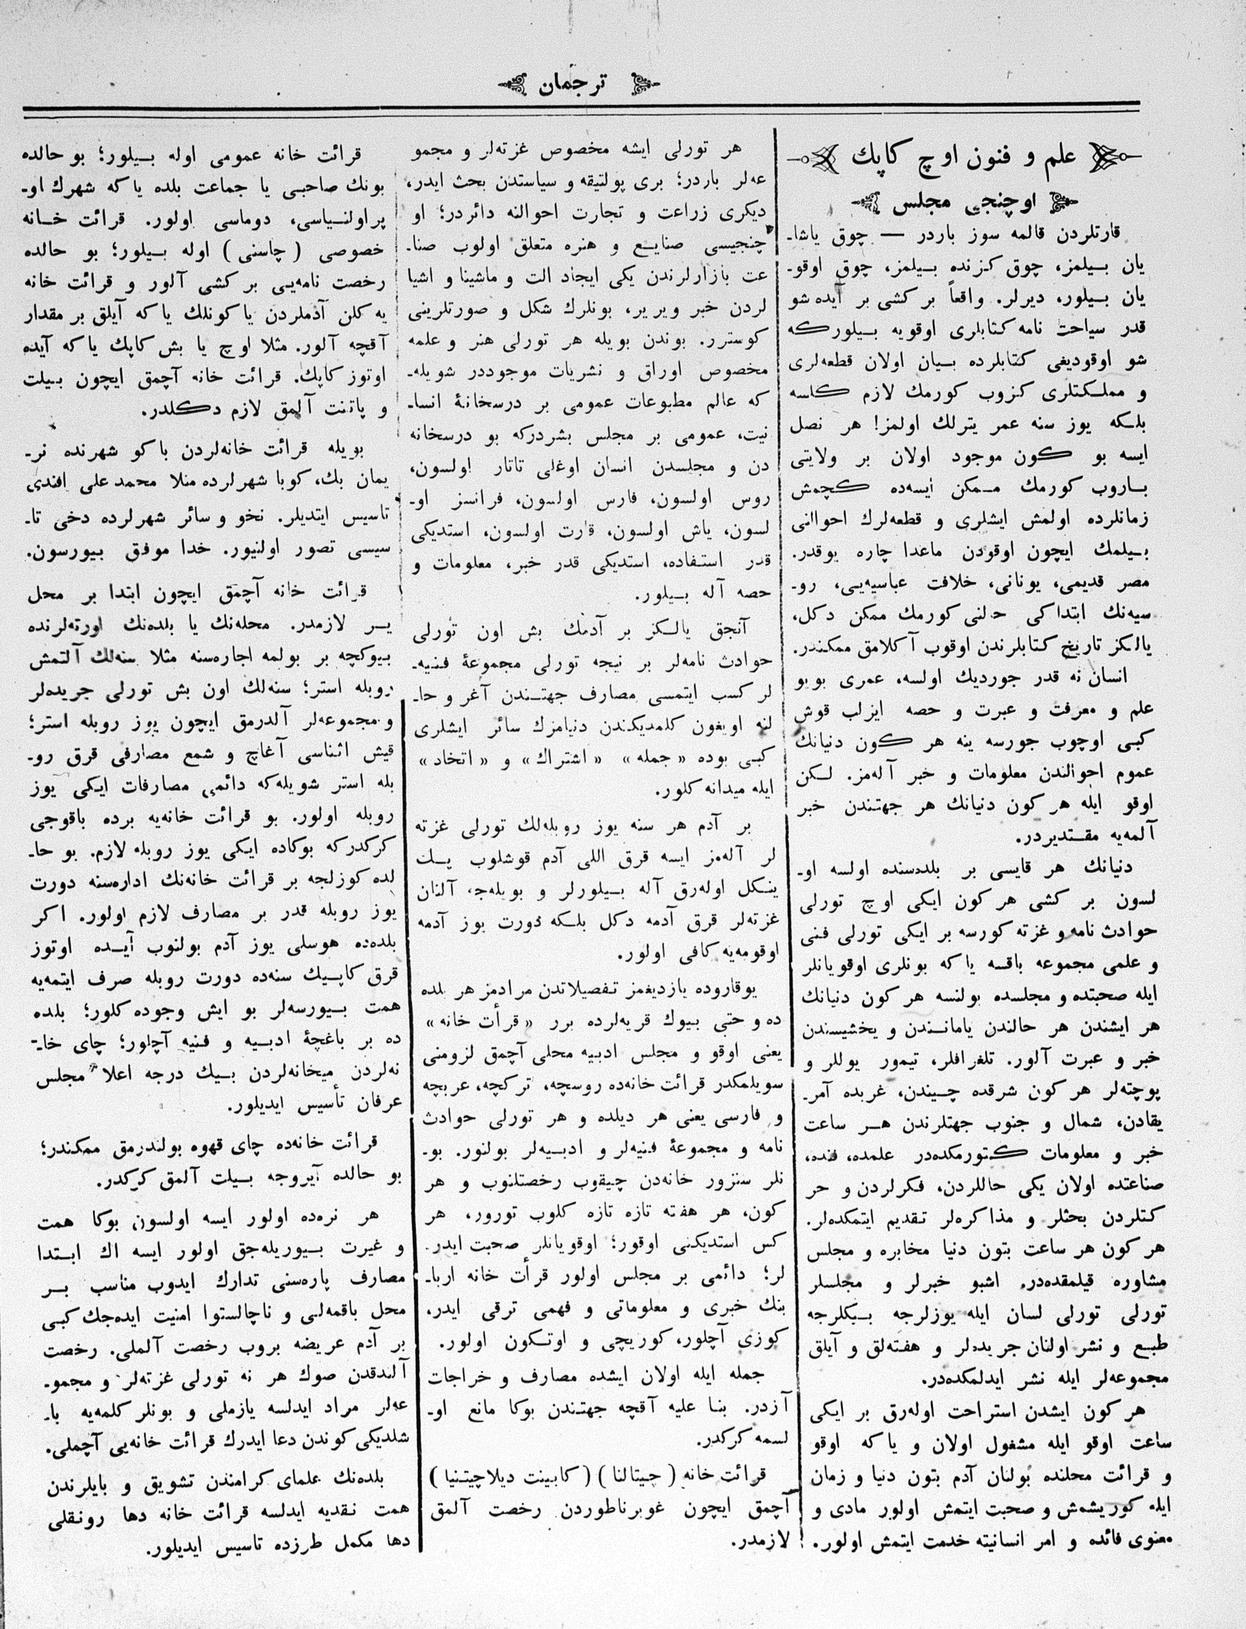 ترجمان
علم و فنون اوچ كاپك
اوچنجی مجلس
قارتلردن قالمه سوز باردر — چوق ياشا-
يان بيلمز، چوق كزنده بيلمز، چوق اوقو-
يان بيلور، ديرلر. واقعاً بر كشی بر آيده شو
قدر سياحت نامه كتابلری اوقويه بيلوركه
شو اوقوديغی كتابلرده بيان اولان قطعه‌لری
و مملكتلری كزوب كورمك لازم كلسه
بلكه يوز سنه عمر يترلك اولمز! هر نصل
ايسه بو كون موجود اولان بر ولايتی
باروب كورمك ممكن ايسه‌ده كچمش
زمانلرده اولمش ايشلری و قطعه‌لرك احوالنی
بيلمك ايچون اوقودن ماعدا چاره يوقدر.
مصر قديمی، يونانی، خلافت عباسيه‌يی، رو-
سيه‌نك ابتداكی حالنی كورمك ممكن دكل،
يالكز تاريخ كتابلرندن اوقوب آكلامق ممكندر.
انسان نه قدر جورديك اولسه، عمری بويو
علم و معرفت و عبرت و حصه ايزلب قوش
كبی اوچوب جورسه ينه هر كون دنيانك
عموم احوالندن معلومات و خبر آله‌مز. لكن
اوقو ايله هر كون دنيانك هر جهتندن خبر
آلمه‌يه مقتديردر.
دنيانك هر قايسی بر بلده‌سنده اولسه او-
لسون بر كشی هر كون ايكی اوچ تورلی
حوادث نامه و غزته كورسه بر ايكی تورلی فنی
و علمی مجموعه باقسه ياكه بونلری اوقويانلر
ايله صحبتده و مجلسده بولنسه هر كون دنيانك
هر ايشندن هر حالندن يامانندن و يخشيسندن
خبر و عبرت آلور. تلغرافلر، تيمور يوللر و
پوچته‌لر هر كون شرقده چيندن، غربده آمر-
يقادن، شمال و جنوب جهتلرندن هر ساعت
خبر و معلومات كتورمكده‌در علمده، فنده،
صناعتده اولان يكی حاللردن، فكرلردن و حر
كتلردن بحثلر و مذاكره‌لر تقديم ايتمكده‌لر.
هر كون هر ساعت بتون دنيا مخابره و مجلس
مشاوره قيلمقده‌در. اشبو خبرلر و مجلسلر
تورلی تورلی لسان ايله يوزلرجه بيكلرجه
طبع و نشر اولنان جريده‌لر و هفته‌لق و آيلق
مجموعه‌لر ايله نشر ايدلمكده‌در.
هر كون ايشدن استراحت اوله‌رق بر ايكی
ساعت اوقو ايله مشغول اولان و ياكه اوقو
و قرائت محلنده بولنان آدم بتون دنيا و زمان
ايله كوريشمش و صحبت ايتمش اولور مادی و
معنوی فائده و امر انسانيته خدمت ايتمش اولور.
هر تورلی ايشه مخصوص غزته‌لر و مجمو
عه‌لر باردر؛ بری پولتيقه و سياستدن بحث ايدر،
ديكری زراعت و تجارت احوالنه دائردر؛ او
چنجيسی صنايع و هنره متعلق اولوب صنا-
عت بازارلرندن يكی ايجاد الت و ماشينا و اشيا
لردن خبر ويرير، بونلرك شكل و صورتلرينی
كوسترر. بوندن بويله هر تورلی هنر و علمه
مخصوص اوراق و نشريات موجوددر شويله-
كه عالم مطبوعات عمومی بر درسخانهٔ انسا-
نيت، عمومی بر مجلس بشردركه بو درسخانه
دن و مجلسدن انسان اوغلی تاتار اولسون،
روس اولسون، فارس اولسون، فرانسز او-
لسون، ياش اولسون، قارت اولسون، استديكی
قدر استفاده، استديكی قدر خبر، معلومات و
حصه آله بيلور.
آنجق يالكز بر آدمك بش اون تورلی
حوادث نامه‌لر بر نيچه تورلی مجموعهٔ فنيه-
لر كسب ايتمسی مصارف جهتندن آغر و حا-
لنه اويغون كلمديكندن دنيامزك سائر ايشلری
كبی بوده «جمله» «اشتراك» و «اتحاد»
ايله ميدانه كلور.
بر آدم هر سنه يوز روبله‌لك تورلی غزته
لر آله‌مز ايسه قرق اللی آدم قوشلوب يك
ينكل اوله‌رق آله بيلورلر و بويله‌جه آلنان
غزته‌لر قرق آدمه دكل بلكه دورت يوز آدمه
اوقومه‌يه كافی اولور.
يوقاروده يازديغمز تفصيلاتدن مرادمز هر بلده
ده و حتی بيوك قريه‌لرده برر «قرأت خانه»
يعنی اوقو و مجلس ادبيه محلی آچمق لزومنی
سويلمكدر قرائت خانه‌ده روسچه، تركچه، عربچه
و فارسی يعنی هر ديلده و هر تورلی حوادث
نامه و مجموعهٔ فنيه‌لر و ادبيه‌لر بولنور. بو-
نلر سنزور خانه‌دن چيقوب رخصتلنوب و هر
كون، هر هفته تازه تازه كلوب تورور، هر
كس استديكنی اوقور؛ اوقويانلر صحبت ايدر-
لر؛ دائمی بر مجلس اولور قرأت خانه اربا-
بنك خبری و معلوماتی و فهمی ترقی ايدر،
كوزی آچلور، كوريچی و اوتكون اولور.
جمله ايله اولان ايشده مصارف و خراجات
آزدر. بنا عليه آقچه جهتندن بوكا مانع او-
لسمه كركدر.
قرائت خانه (چيتالنا) (كابينت ديلاچيتنيا)
آچمق ايچون غوبرناطوردن رخصت آلمق
لازمدر.
قرائت خانه عمومی اوله بيلور؛ بو حالده
بونك صاحبی يا جماعت بلده ياكه شهرك او-
پراولنياسی، دوماسی اولور. قرائت خانه
خصوصی (چاسنی) اوله بيلور؛ بو حالده
رخصت نامه‌يی بر كشی آلور و قرائت خانه
يه كلن آدملردن ياكونلك ياكه آيلق بر مقدار
آقچه آلور. مثلا اوچ يا بش كاپك ياكه آيده
اوتوز كاپك. قرائت خانه آچمق ايچون بيلت
و پاتنت آلمق لازم دكلدر.
بويله قرائت خانه‌لردن باكو شهرنده نر-
يمان بك، كوبا شهرلرده منلا محمد علی افندی
تاسيس ايتديلر. نخو و سائر شهرلرده دخی تا-
سيسی تصور اولنيور. خدا موفق بيورسون.
قرائت خانه آچمق ايچون ابتدا بر محل
ير لازمدر. محله‌نك يا بلده‌نك اورته‌لرنده
بيوكچه بر بولمه اجاره‌سنه مثلا سنه‌لك آلتمش
روبله استر؛ سنه‌لك اون بش تورلی جريده‌لر
و مجموعه‌لر آلدرمق ايچون يوز روبله استر؛
قيش اثناسی آغاچ و شمع مصارفی قرق رو-
بله استر شويله‌كه دائمی مصارفات ايكی يوز
روبله اولور. بو قرائت خانه‌يه برده باقوجی
كركدركه بوكاده ايكی يوز روبله لازم. بو حا-
لده كوزلجه بر قرائت خانه‌نك اداره‌سنه دورت
يوز روبله قدر بر مصارف لازم اولور. اكر
بلده‌ده هوسلی يوز آدم بولنوب آيده اوتوز
قرق كاپيك سنه‌ده دورت روبله صرف ايتمه‌يه
همت بيورسه‌لر بو ايش وجوده كلور؛ بلده
ده بر باغچهٔ ادبيه و فنيه آچلور؛ چای خا-
نه‌لردن ميخانه‌لردن بيك درجه اعلا مجلس
عرفان تأسيس ايديلور.
قرائت خانه‌ده چای قهوه بولندرمق ممكندر؛
بو حالده آيروجه بيلت آلمق كركدر.
هر نره‌ده اولور ايسه اولسون بوكا همت
و غيرت بيوريله‌جق اولور ايسه اك ابتدا
مصارف پاره‌سنی تدارك ايدوب مناسب بر
محل باقمه‌لی و ناچالستوا امنيت ايده‌جك كبی
بر آدم عريضه بروب رخصت آلملی. رخصت
آلندقدن صوك هر نه تورلی غزته‌لر و مجمو-
عه‌لر مراد ايدلسه يازملی و بونلر كلمه‌يه با-
شلديكی كوندن دعا ايدرك قرائت خانه‌يی آچملی.
بلده‌نك علمای كرامندن تشويق و بايلرندن
همت نقديه ايدلسه قرائت خانه دها رونقلی
دها مكمل طرزده تاسيس ايديلور.